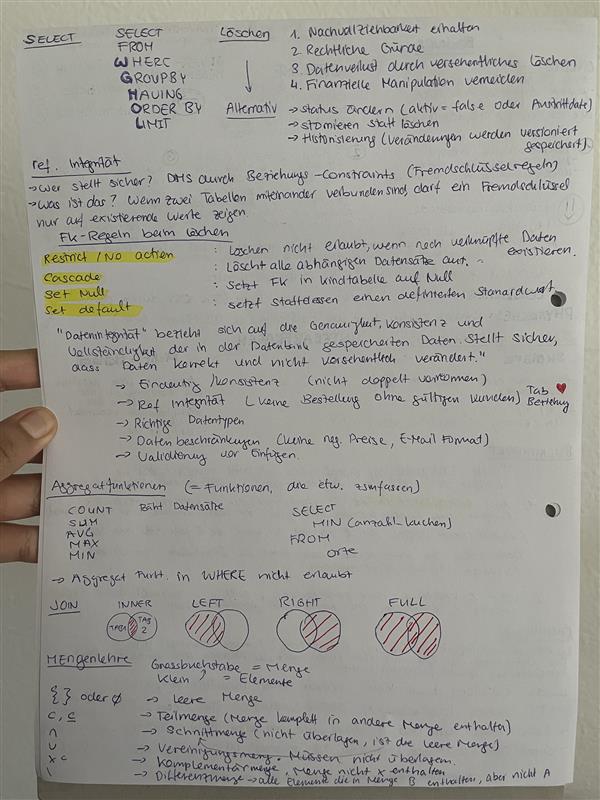 SELECT
SELECT
FROM
WHERE
GROUPBY
HAVING
ORDER BY
LIMIT
Löschen
Alternativ
1. Nachvollziehbarkeit erhalten
2. Rechtliche Gründe
3. Datenverlust durch versehentliches Löschen
4. Finanzielle Manipulation vermeiden
→ status ändern (aktiv = false oder Austrittdate)
→ stornieren statt löschen
→ Historisierung (Veränderungen werden versioniert gespeichert)
ref. Integrität
→ Wer stellt sicher? DMS durch Beziehungs-Constraints (Fremdschlüsselregeln)
→ Was ist das? Wenn zwei Tabellen miteinander verbunden sind, darf ein Fremdschlüssel
nur auf existierende Werte zeigen.
FK-Regeln beim löschen
Restrict / No action : Löschen nicht erlaubt, wenn noch verknüpfte Daten existieren.
Cascade : Löscht alle abhängigen Datensätze aut.
Set Null : Setzt FK in kindtabelle auf Null
Set default : setzt stattdessen einen definierten Stanardwert
"Datenintegrität" bezieht sich auf die Genauigkeit, Konsistenz und
Vollständigkeit der in der Datenbank gespeicherten Daten. Stellt sicher,
dass Daten korrekt und nicht versehentlich verändert."
→ Eindeutig /Konsistenz (nicht doppelt vorkommen)
→ Ref Integrität (keine Bestellung ohne gültigen kunden) Tab ♥ Beziehung
→ Richtige Datentypen
→ Datenbeschränkungen (keine neg. Preise, E-Mail Format)
→ Validierung vor Einfügen.
Aggregatfunktionen (= Funktionen, die etw. zsmfassen)
COUNT zählt Datensätze
SUM
AVG
MAX
MIN
SELECT
MIN (anzahl-kuchen)
FROM
orte
→ Aggregat Funkt. in WHERE nicht erlaubt
JOIN INNER LEFT RIGHT FULL
TAB1 TAB 2
Mengenlehre Grossbuchstabe = Menge
Klein " = Elemente
{ } oder ∅ → leere Menge
⊂, ⊆ → Teilmenge (Menge komplett in andere Menge enthalten)
∩ → Schnittmenge (nicht überlagen, ist die leere Menge)
∪ → Vereinigungsmeng. Müssen nicht überlagen.
x c → Komplementärmenge, Menge nicht x enthalten
\ → Differenzmenge → alle Elemente die in Menge B enthalten, aber nicht A